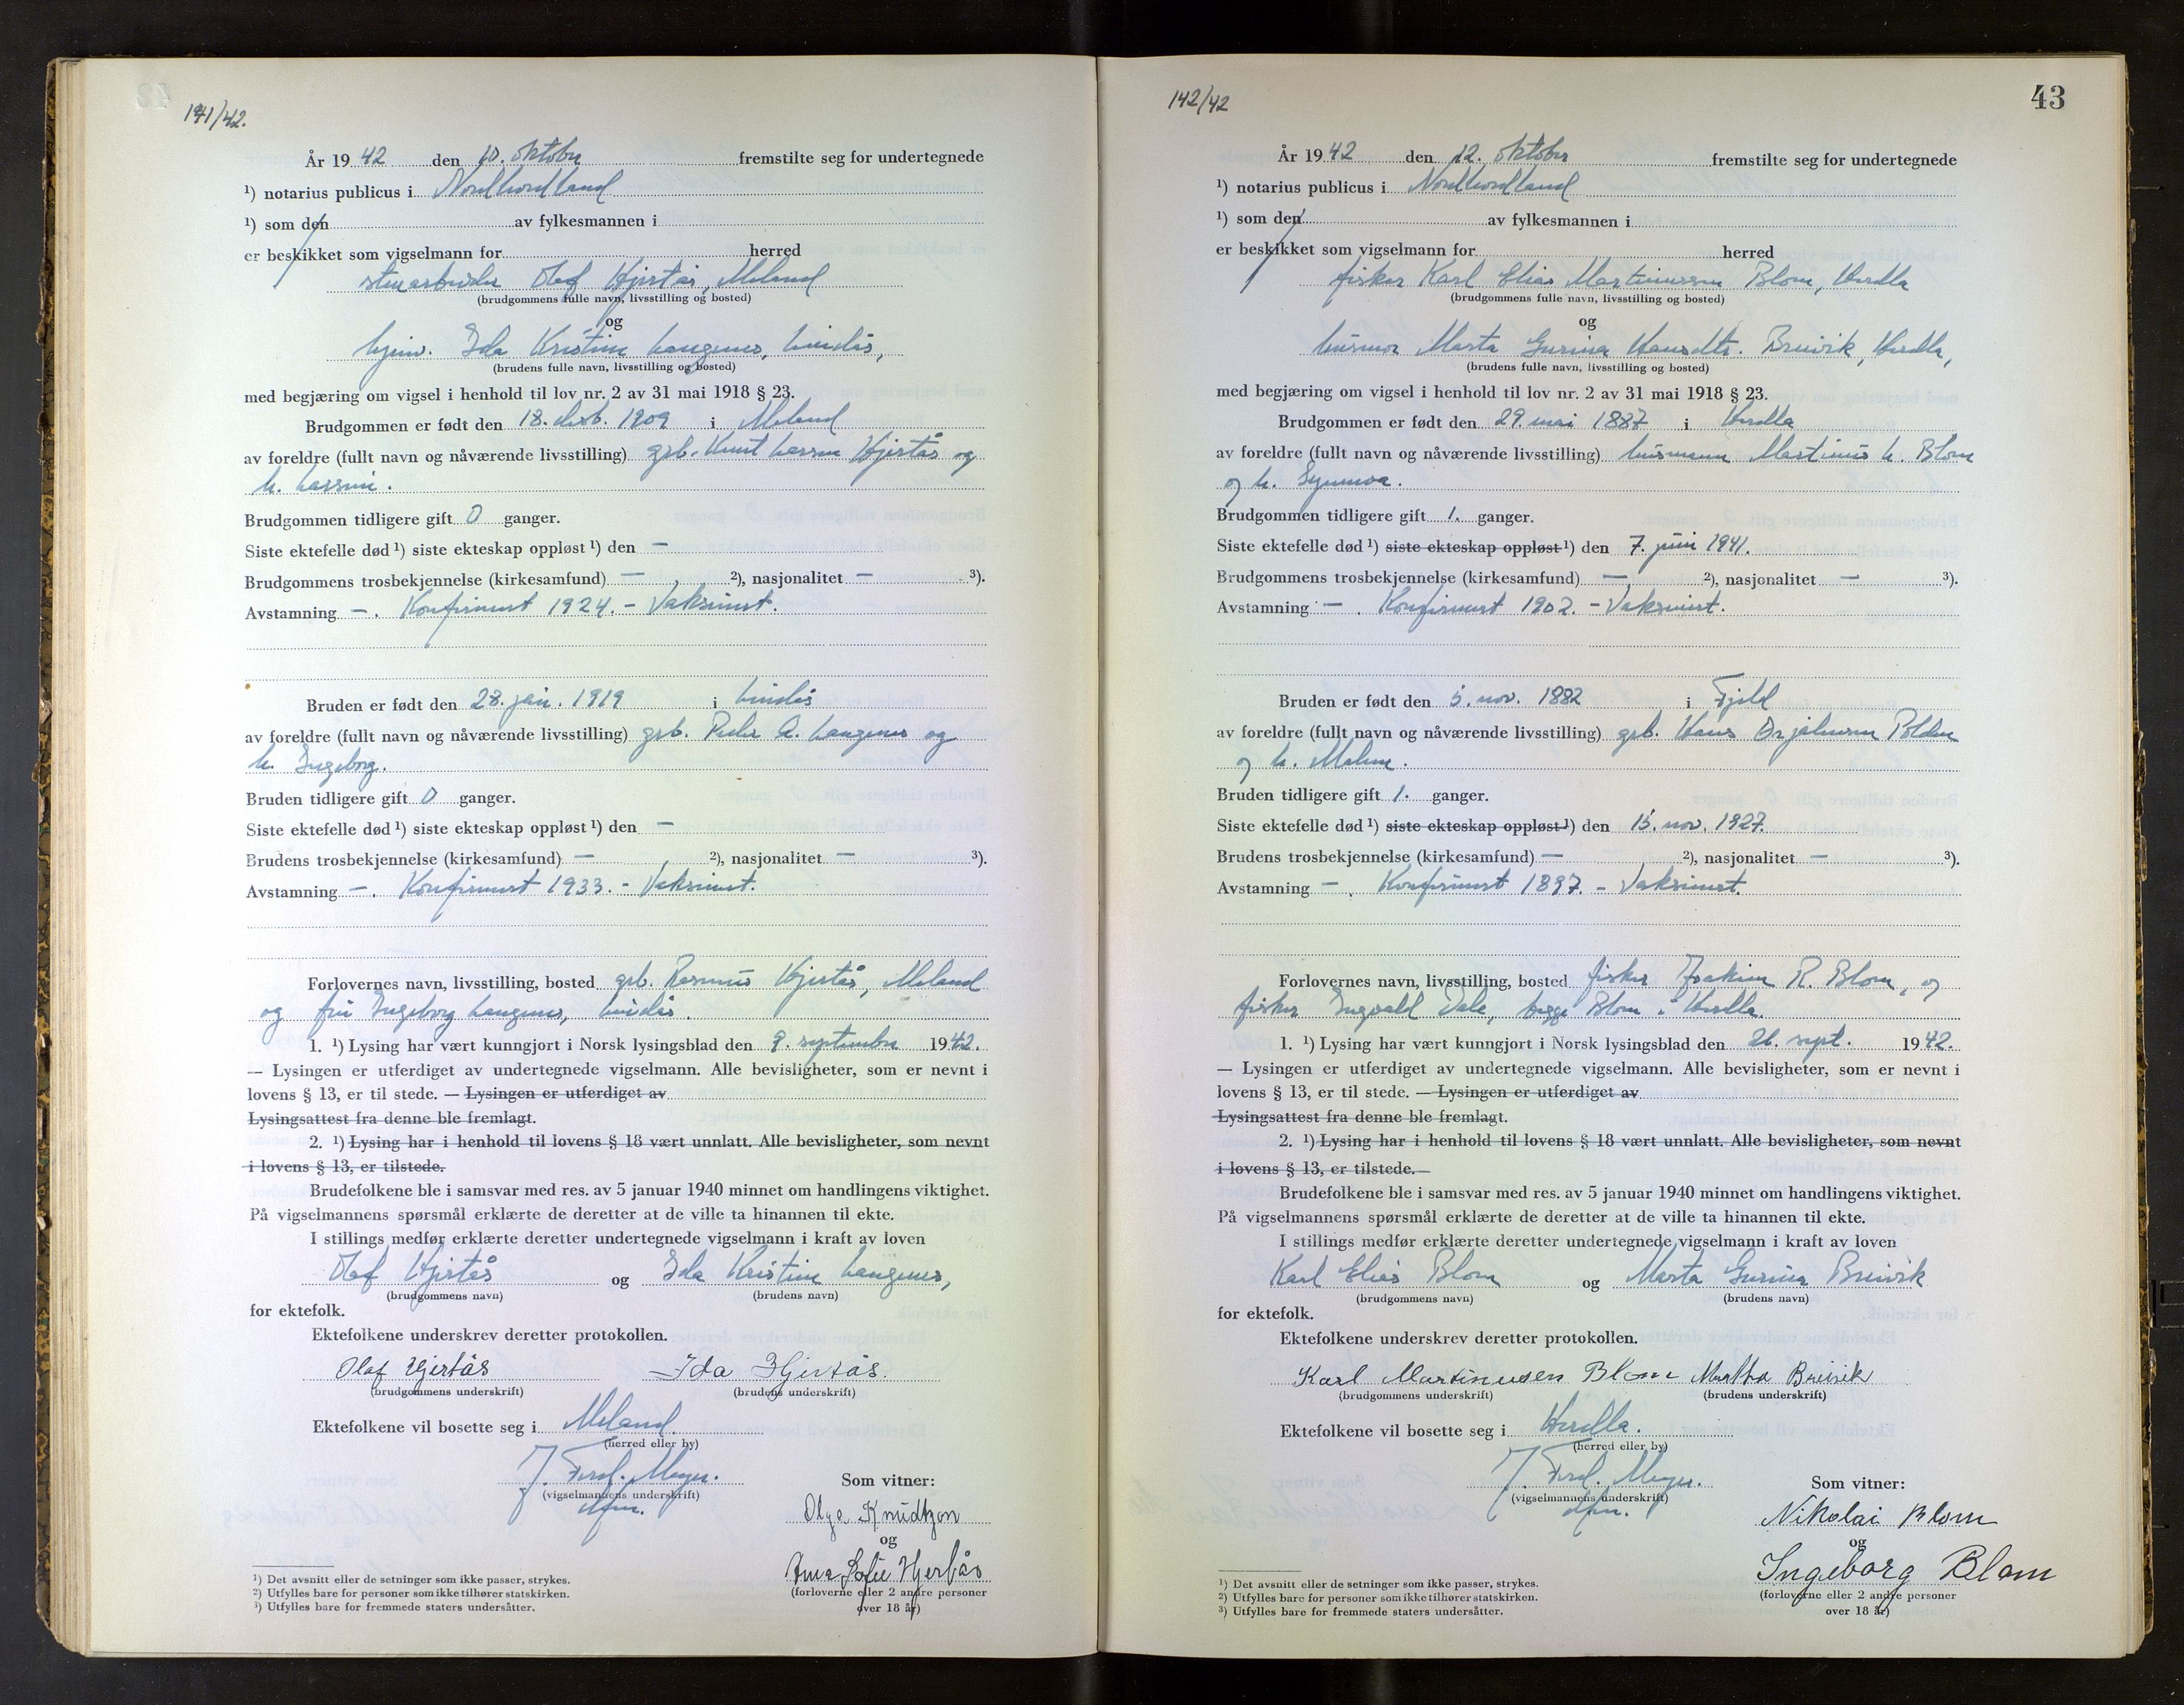 141/42.
År 1942 den 10. oktober fremstilte seg for undertegnede
¹) notarius publicus i Nordhordland
¹) som den av fylkesmannen i
er beskikket som vigselmann for herred
stenarbeider Olaf Hjertås, Meland
(brudgommens fulle navn, livsstilling og bosted)
og
hjemv. Ida Kristine Langenes, Lindås,
(brudens fulle navn, livsstilling og bosted)
med begjæring om vigsel i henhold til lov nr. 2 av 31 mai 1918 § 23.
Brudgommen er født den 18. 1909 i Meland
av foreldre (fullt navn og nåværende livsstilling) grb. Knut Larsen Hjertås og
h. Larsine.
Brudgommen tidligere gift 0 ganger.
Siste ektefelle død ¹) siste ekteskap oppløst ¹) den —
Brudgommens trosbekjennelse (kirkesamfund) — ²), nasjonalitet — ³).
Avstamning —. Konfirmert 1924. - Vaksinert.
Bruden er født den 28. jan. 1919 i Lindås
av foreldre (fullt navn og nåværende livsstilling) grb. Peder A. Langenes og
h. Ingeborg.
Bruden tidligere gift 0 ganger.
Siste ektefelle død ¹) siste ekteskap oppløst ¹) den —
Brudens trosbekjennelse (kirkesamfund) — ²), nasjonalitet — ³).
Avstamning —. Konfirmert 1933. - Vaksinert.
Forlovernes navn, livsstilling, bosted grb. Rasmus Hjertås, Meland
og fru Ingeborg Langenes, Lindås.
1. ¹) Lysing har vært kunngjort i Norsk lysingsblad den 9. september 1942.
— Lysingen er utferdiget av undertegnede vigselmann. Alle bevisligheter, som er nevnt i
lovens § 13, er til stede. — Lysingen er utferdiget av
Lysingsattest fra denne ble fremlagt.
2. ¹) Lysing har i henhold til lovens § 18 vært unnlatt. Alle bevisligheter, som nevnt
i lovens § 13, er tilstede.
Brudefolkene ble i samsvar med res. av 5 januar 1940 minnet om handlingens viktighet.
På vigselmannens spørsmål erklærte de deretter at de ville ta hinannen til ekte.
I stillings medfør erklærte deretter undertegnede vigselmann i kraft av loven
Olaf Hjertås og Ida Kristine Langenes,
(brudgommens navn) (brudens navn)
for ektefolk.
Ektefolkene underskrev deretter protokollen.
Olaf Hjertås Ida Hjertås.
(brudgommens underskrift) (brudens underskrift)
Ektefolkene vil bosette seg i Meland.
(herred eller by)
J. Ferd. Meyer.
(vigselmannens underskrift)
Som vitner:
Olga Knudtzon
og
Anna Sofie Hjertås
(forloverne eller 2 andre personer
over 18 år)
¹) Det avsnitt eller de setninger som ikke passer, strykes.
²) Utfylles bare for personer som ikke tilhører statskirken.
³) Utfylles bare for fremmede staters undersåtter.
142/42
43
År 1942 den 12. oktober fremstilte seg for undertegnede
¹) notarius publicus i Nordhordland
¹) som den av fylkesmannen i
er beskikket som vigselmann for herred
fisker Karl Elias Martinussen Blom, Herdla
(brudgommens fulle navn, livsstilling og bosted)
og
husmor Marta Gurina Hansdtr. Breivik, Herdla,
(brudens fulle navn, livsstilling og bosted)
med begjæring om vigsel i henhold til lov nr. 2 av 31 mai 1918 § 23.
Brudgommen er født den 29. mai 1887 i Herdla
av foreldre (fullt navn og nåværende livsstilling) husmann Martinus L. Blom
og h. Synneva.
Brudgommen tidligere gift 1. ganger.
Siste ektefelle død ¹) siste ekteskap oppløst ¹) den 7. juni 1941.
Brudgommens trosbekjennelse (kirkesamfund) — ²), nasjonalitet — ³).
Avstamning —. Konfirmert 1902. - Vaksinert.
Bruden er født den 5. nov. 1882 i Fjeld
av foreldre (fullt navn og nåværende livsstilling) grb. Hans Ørjansen Polden
og h. Malene.
Bruden tidligere gift 1. ganger.
Siste ektefelle død ¹) siste ekteskap oppløst ¹) den 15. nov. 1927.
Brudens trosbekjennelse (kirkesamfund) — ²), nasjonalitet — ³).
Avstamning —. Konfirmert 1897. - Vaksinert.
Forlovernes navn, livsstilling, bosted fisker Joakim R. Blom, og
fisker Ingvald Dale, begge Blom i Herdla.
1. ¹) Lysing har vært kunngjort i Norsk lysingsblad den 26. sept. 1942.
— Lysingen er utferdiget av undertegnede vigselmann. Alle bevisligheter, som er nevnt i
lovens § 13, er til stede. — Lysingen er utferdiget av
Lysingsattest fra denne ble fremlagt.
2. ¹) Lysing har i henhold til lovens § 18 vært unnlatt. Alle bevisligheter, som nevnt
i lovens § 13, er tilstede.—
Brudefolkene ble i samsvar med res. av 5 januar 1940 minnet om handlingens viktighet.
På vigselmannens spørsmål erklærte de deretter at de ville ta hinannen til ekte.
I stillings medfør erklærte deretter undertegnede vigselmann i kraft av loven
Karl Elias Blom og Marta Gurina Breivik
(brudgommens navn) (brudens navn)
for ektefolk.
Ektefolkene underskrev deretter protokollen.
Karl Martinusen Blom Martha Breivik
(brudgommens underskrift) (brudens underskrift)
Ektefolkene vil bosette seg i Herdla.
(herred eller by)
J. Ferd. Meyer.
(vigselmannens underskrift)
Som vitner:
Nikolai Blom
og
Ingeborg Blom
(forloverne eller 2 andre personer
over 18 år)
¹) Det avsnitt eller de setninger som ikke passer, strykes.
²) Utfylles bare for personer som ikke tilhører statskirken.
³) Utfylles bare for fremmede staters undersåtter.